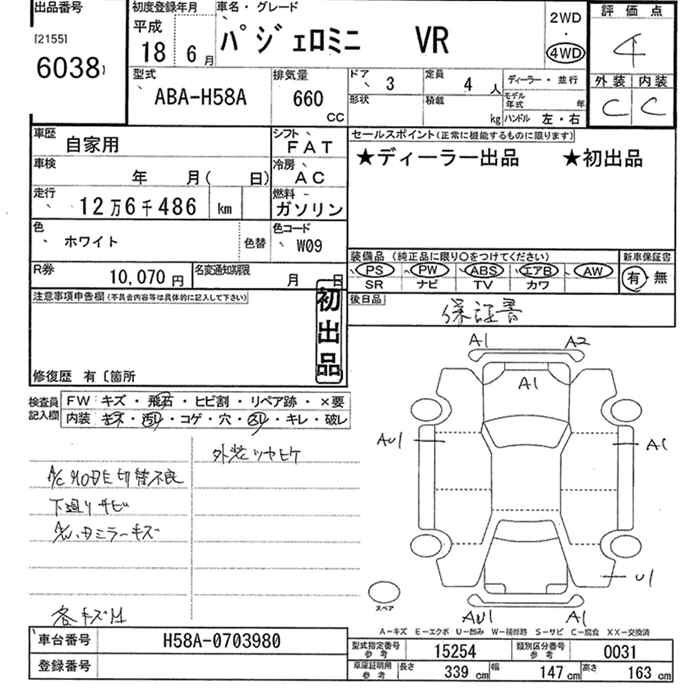 出品番号
[2155]
6038
初度登録年月
平成
18 6月
車名・グレード
パジェロミニ VR
2WD
・
4WD
評価点
4
外装 内装
C C
型式
ABA-H58A
排気量
660
CC
ドア 3
定員 4 人
ディーラー・並行
形状
積載 kg
モデル年式 年
ハンドル 左・右
車歴 自家用
シフト FAT
車検 年 月( 日)
冷房 AC
走行 12万6千486 km
燃料 ガソリン
色 ホワイト
色替
色コード W09
R券 10,070円
名変通知期限 月 日
セールスポイント(正常に機能するものに限ります)
★ディーラー出品 ★初出品
装備品 (純正品に限り○をつけてください)
PS PW ABS エアB AW
SR ナビ TV カワ
新車保証書
有・無
後日品
保証書
注意事項申告欄(不具合内容等は具体的に記入して下さい)
初出品
修復歴 有〔箇所
検査員記入欄
FW キズ・飛石・ヒビ割・リペア跡・×要
内装 キズ・汚れ・コゲ・穴・スレ・キレ・破レ
外装ツヤヒケ
A/C MODE切替不良
下廻りサビ
ミラーキズ
各キズ
A1 A2
A1
AU1 A1
U1
AU1 A1
スペア
A-キズ E-エクボ U-凹み W-補修跡 S-サビ C-腐食 XX-交換済
車台番号 H58A-0703980
登録番号
型式指定番号参考 15254
類別区分番号参考 0031
車庫証明用参考 長さ 339 cm 幅 147 cm 高さ 163 cm